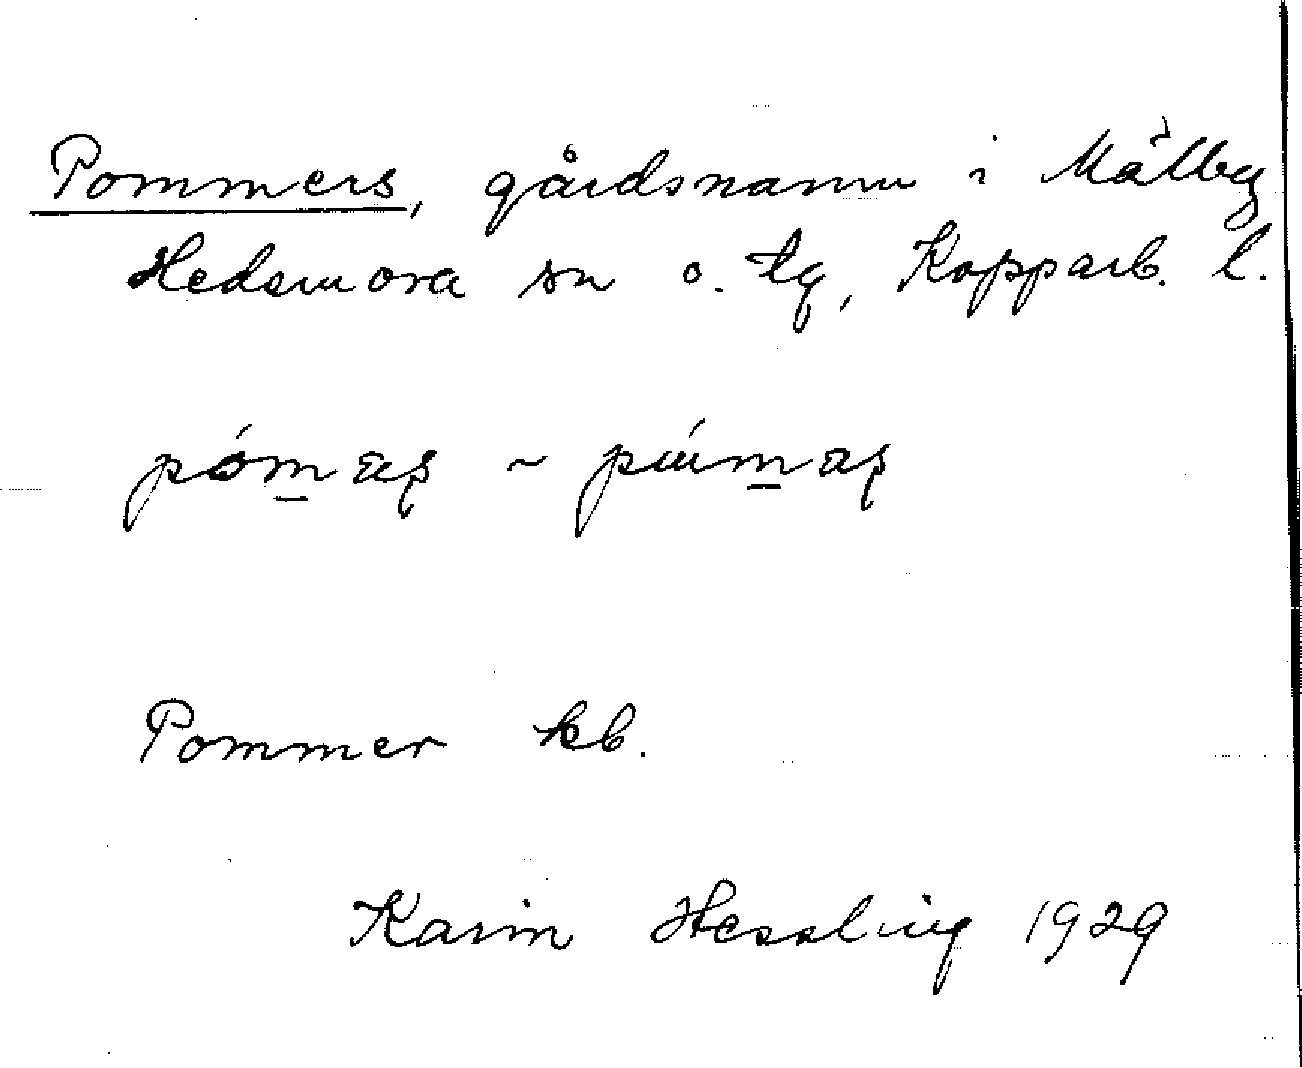 Pommers, gårdsnamn i Mälby
Hedemora sn o. tg, Kopparb. l.
pómas ~ púmas
Pommer kb.
Karin Hessling 1929